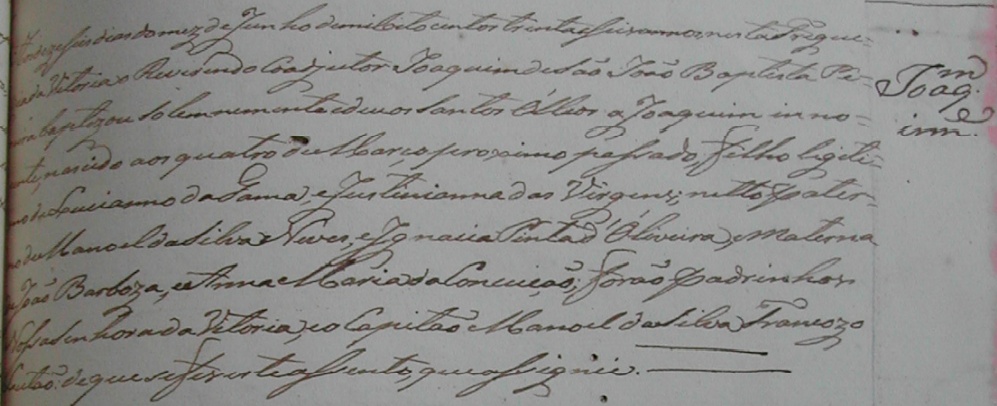 dezeseis dias do mez de Junho de mil oito centos trinta e seis annos, nesta Fregue-
da Vitoria o Reverendo Coadjutor Joaquim de São João Baptista Pe-
baptizou solemnemente e deu os Santos Óleos a Joaquim inno-
nascido aos quatro de Março proximo passado, filho legiti-
mo de Lucianno da Gama, e Justinianna das Virgens; netto pater-
de Manoel da Silva Neves, e Ignacia Pinta d'Óliveira, e materna
João Barboza, e Anna Maria da Conceição: forão padrinhos
Nossa Senhora da Vitoria, e o Capitão Manoel da Silva Francozo
de que se fez este assento, que assignei.
Joaq.m
inn.e